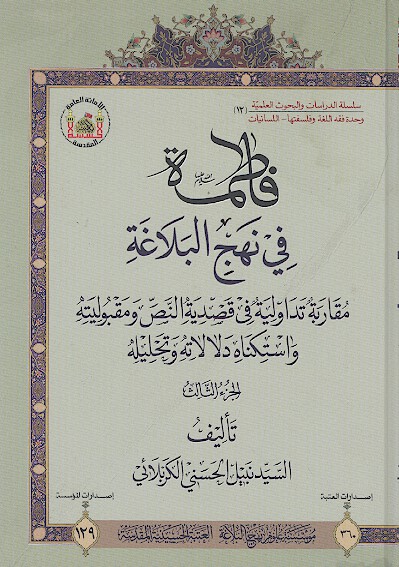 سلسلة الدراسات والبحوث العلمية (١٢)
وحدة فقه اللغة وفلسفتها - اللسانيات
الأمانة العامة
المقدسة
فاطمة
في نَهجِ البَلاغَةِ
مقاربة تداولية في قصدية النص ومقبوليته
واستكناه دلالاته وتحليله
الجزء الثالث
تأليف
السيد نبيل الحسني الكربلائي
إصدارات العتبة
إصدارات المؤسسة
٣٦٠
مؤسسة علوم نهج البلاغة العتبة الحسينية المقدسة
١٢٩